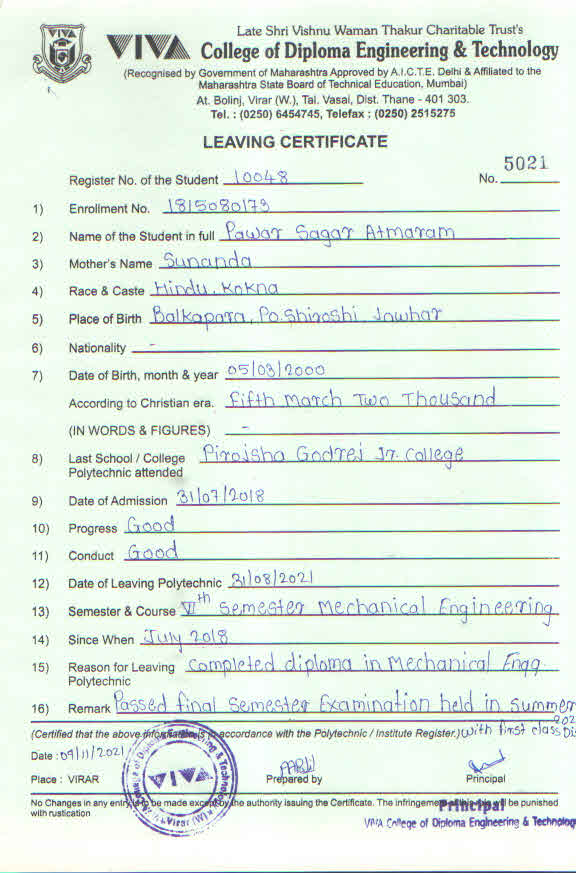 Late Shri Vishnu Waman Thakur Charitable Trust's
VIVA College of Diploma Engineering & Technology
(Recognised by Government of Maharashtra Approved by A.I.C.T.E. Delhi & Affiliated to the
Maharashtra State Board of Technical Education, Mumbai)
At. Bolinj, Virar (W.), Tal. Vasai, Dist. Thane - 401 303.
Tel. : (0250) 6454745, Telefax : (0250) 2515275
LEAVING CERTIFICATE
Register No. of the Student 10048 No. 5021
1) Enrollment No. 1815080173
2) Name of the Student in full Pawar Sagar Atmaram
3) Mother's Name Sunanda
4) Race & Caste Hindu, Kokna
5) Place of Birth Balkapara, Po. Shiroshi Jawhar
6) Nationality -
7) Date of Birth, month & year 05/03/2000
According to Christian era. Fifth March Two Thousand
(IN WORDS & FIGURES) -
8) Last School / College Pirojsha Godrej Jr. College
Polytechnic attended
9) Date of Admission 31/07/2018
10) Progress Good
11) Conduct Good
12) Date of Leaving Polytechnic 31/08/2021
13) Semester & Course VIth Semester Mechanical Engineering
14) Since When July 2018
15) Reason for Leaving Completed diploma in Mechanical Engg
Polytechnic
16) Remark Passed final Semester Examination held in Summer
(Certified that the above information is in accordance with the Polytechnic / Institute Register.) with first class Dis
Date : 09/11/2021
Place : VIRAR Prepared by Principal
VIVA
No Changes in any entry is to be made except by the authority issuing the Certificate. The infringement of this rule will be punished
with rustication
Principal
VIVA College of Diploma Engineering & Technology